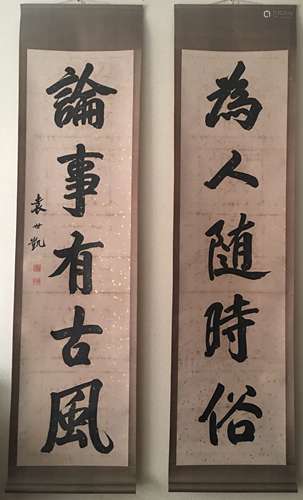 為人随時俗
論事有古風
袁世凱